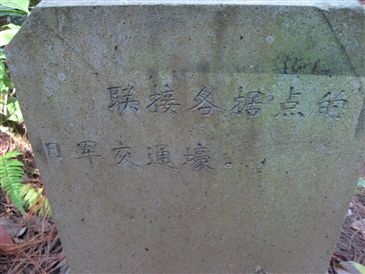 联接各据点的
日军交通壕。